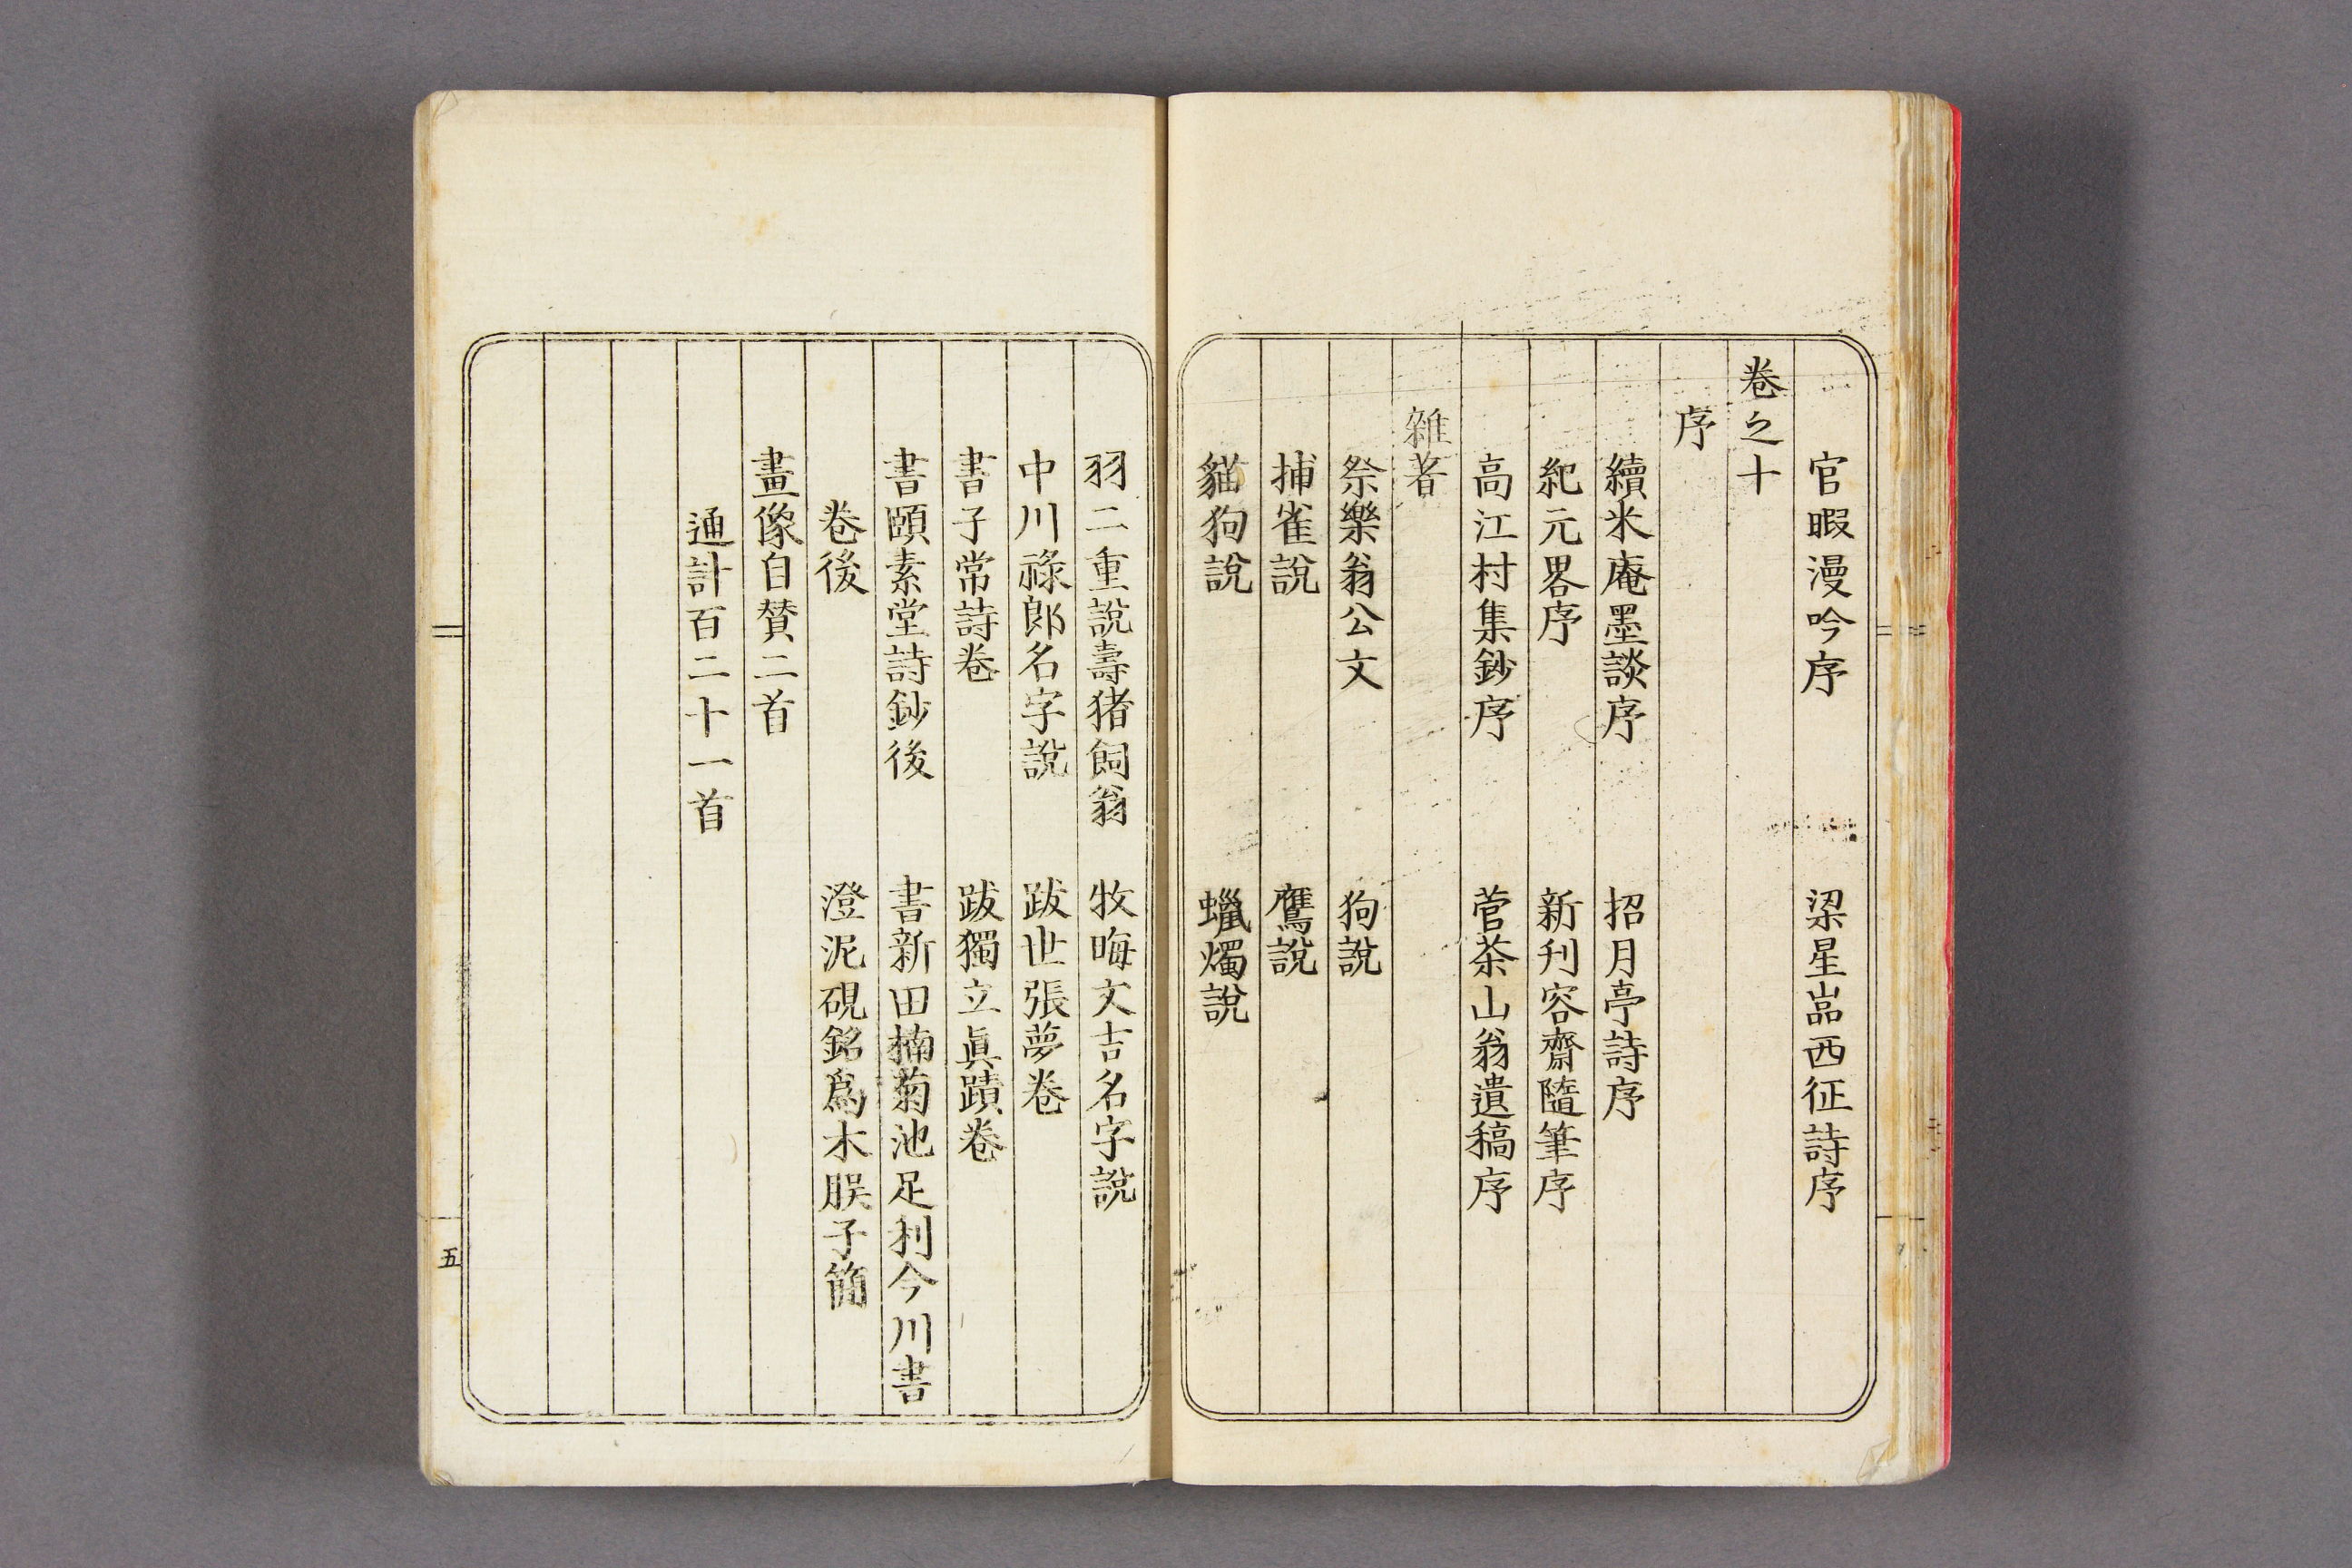 官暇漫吟序　梁星嵓西征詩序
卷之十
序
續米庵墨談序　招月亭詩序
紀元畧序　新刊容齋隨筆序
高江村集鈔序　菅茶山翁遺稿序
雜著
祭樂翁公文　狗說
捕雀說　鷹說
貓狗說　蠟燭說
羽二重說壽猪飼翁　牧晦文吉名字說
中川祿郎名字說　跋世張夢卷
書子常詩卷　跋獨立眞蹟卷
書頤素堂詩鈔後　書新田楠菊池足利今川書
卷後　澄泥硯銘爲木脵子簡
畫像自賛二首
通計百二十一首
五